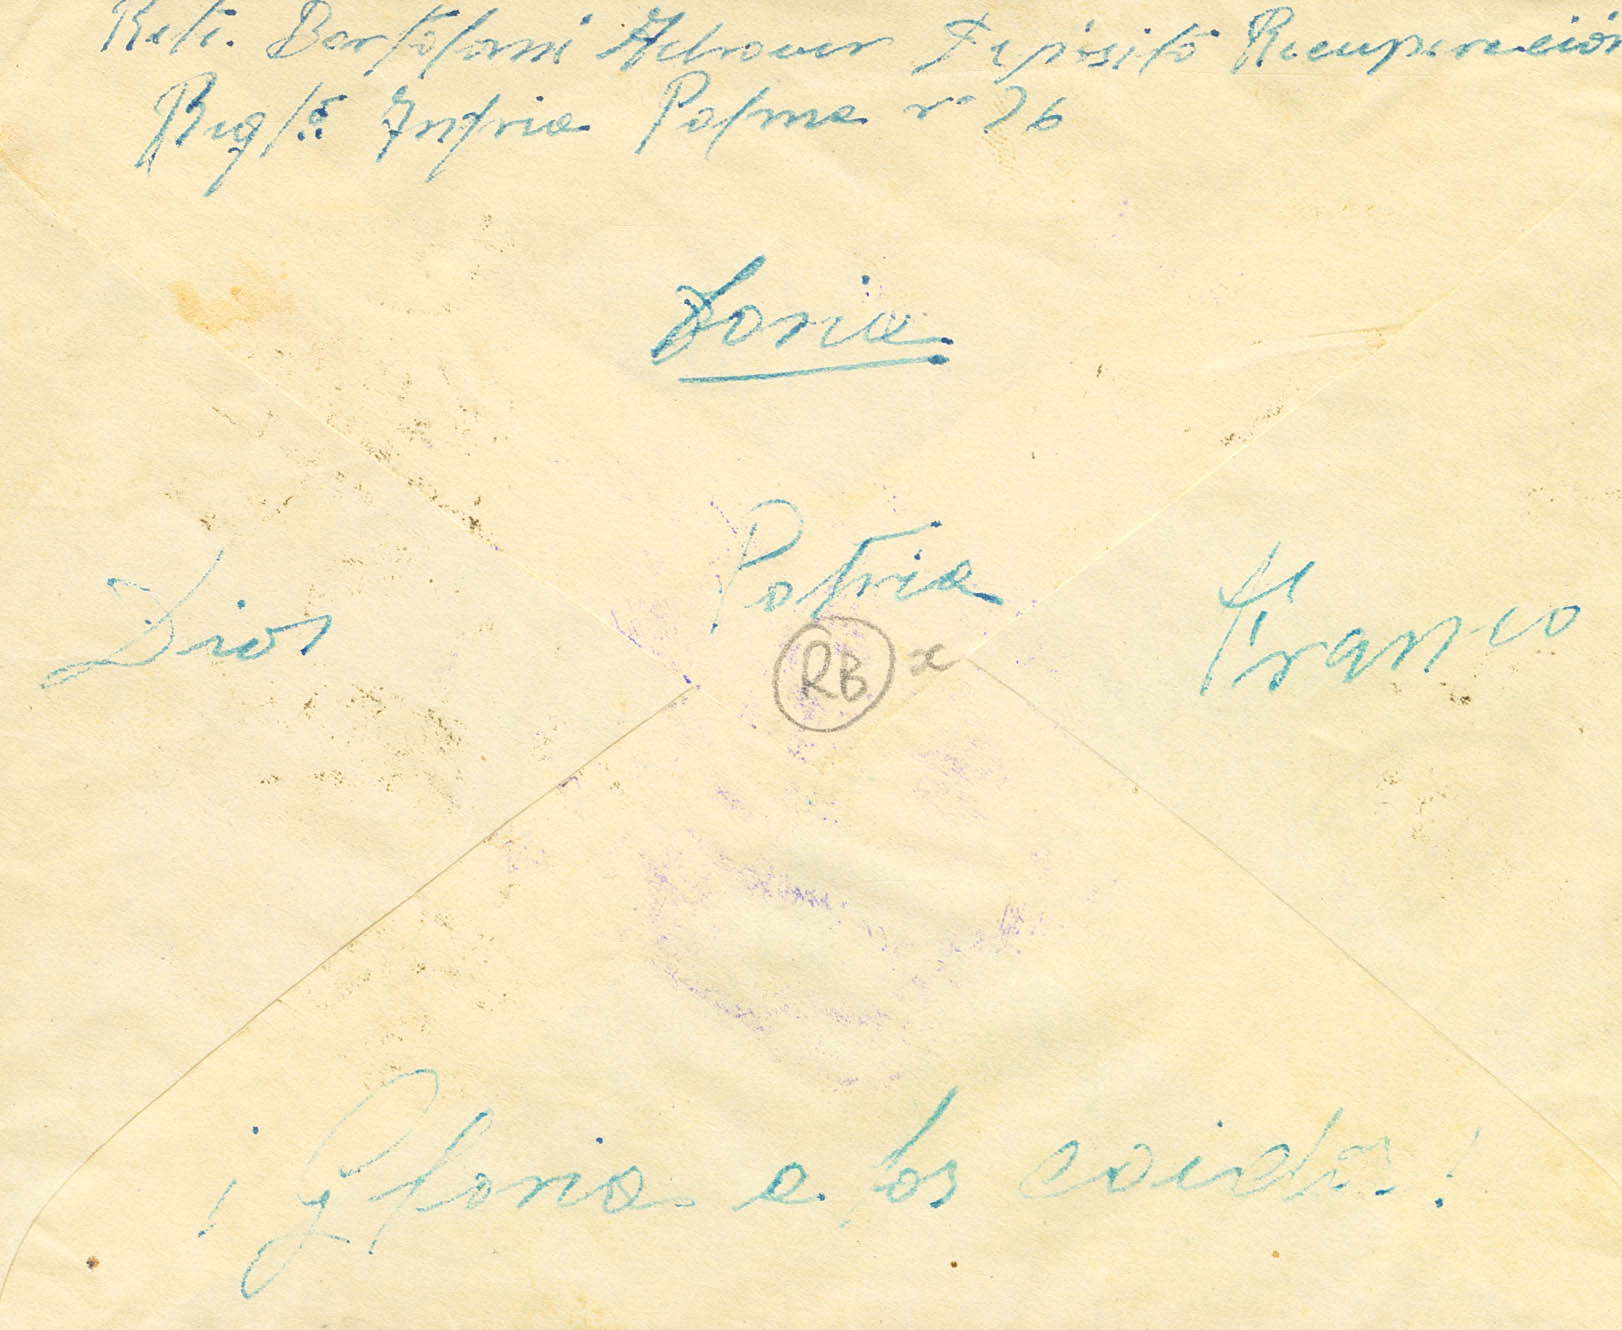 Rete. Bartolomé Adrover Depósito Recuperación
Regtº Infria Palma nº 36
Soria
Dios Patria Franco
RB x
¡Gloria a los caidos!